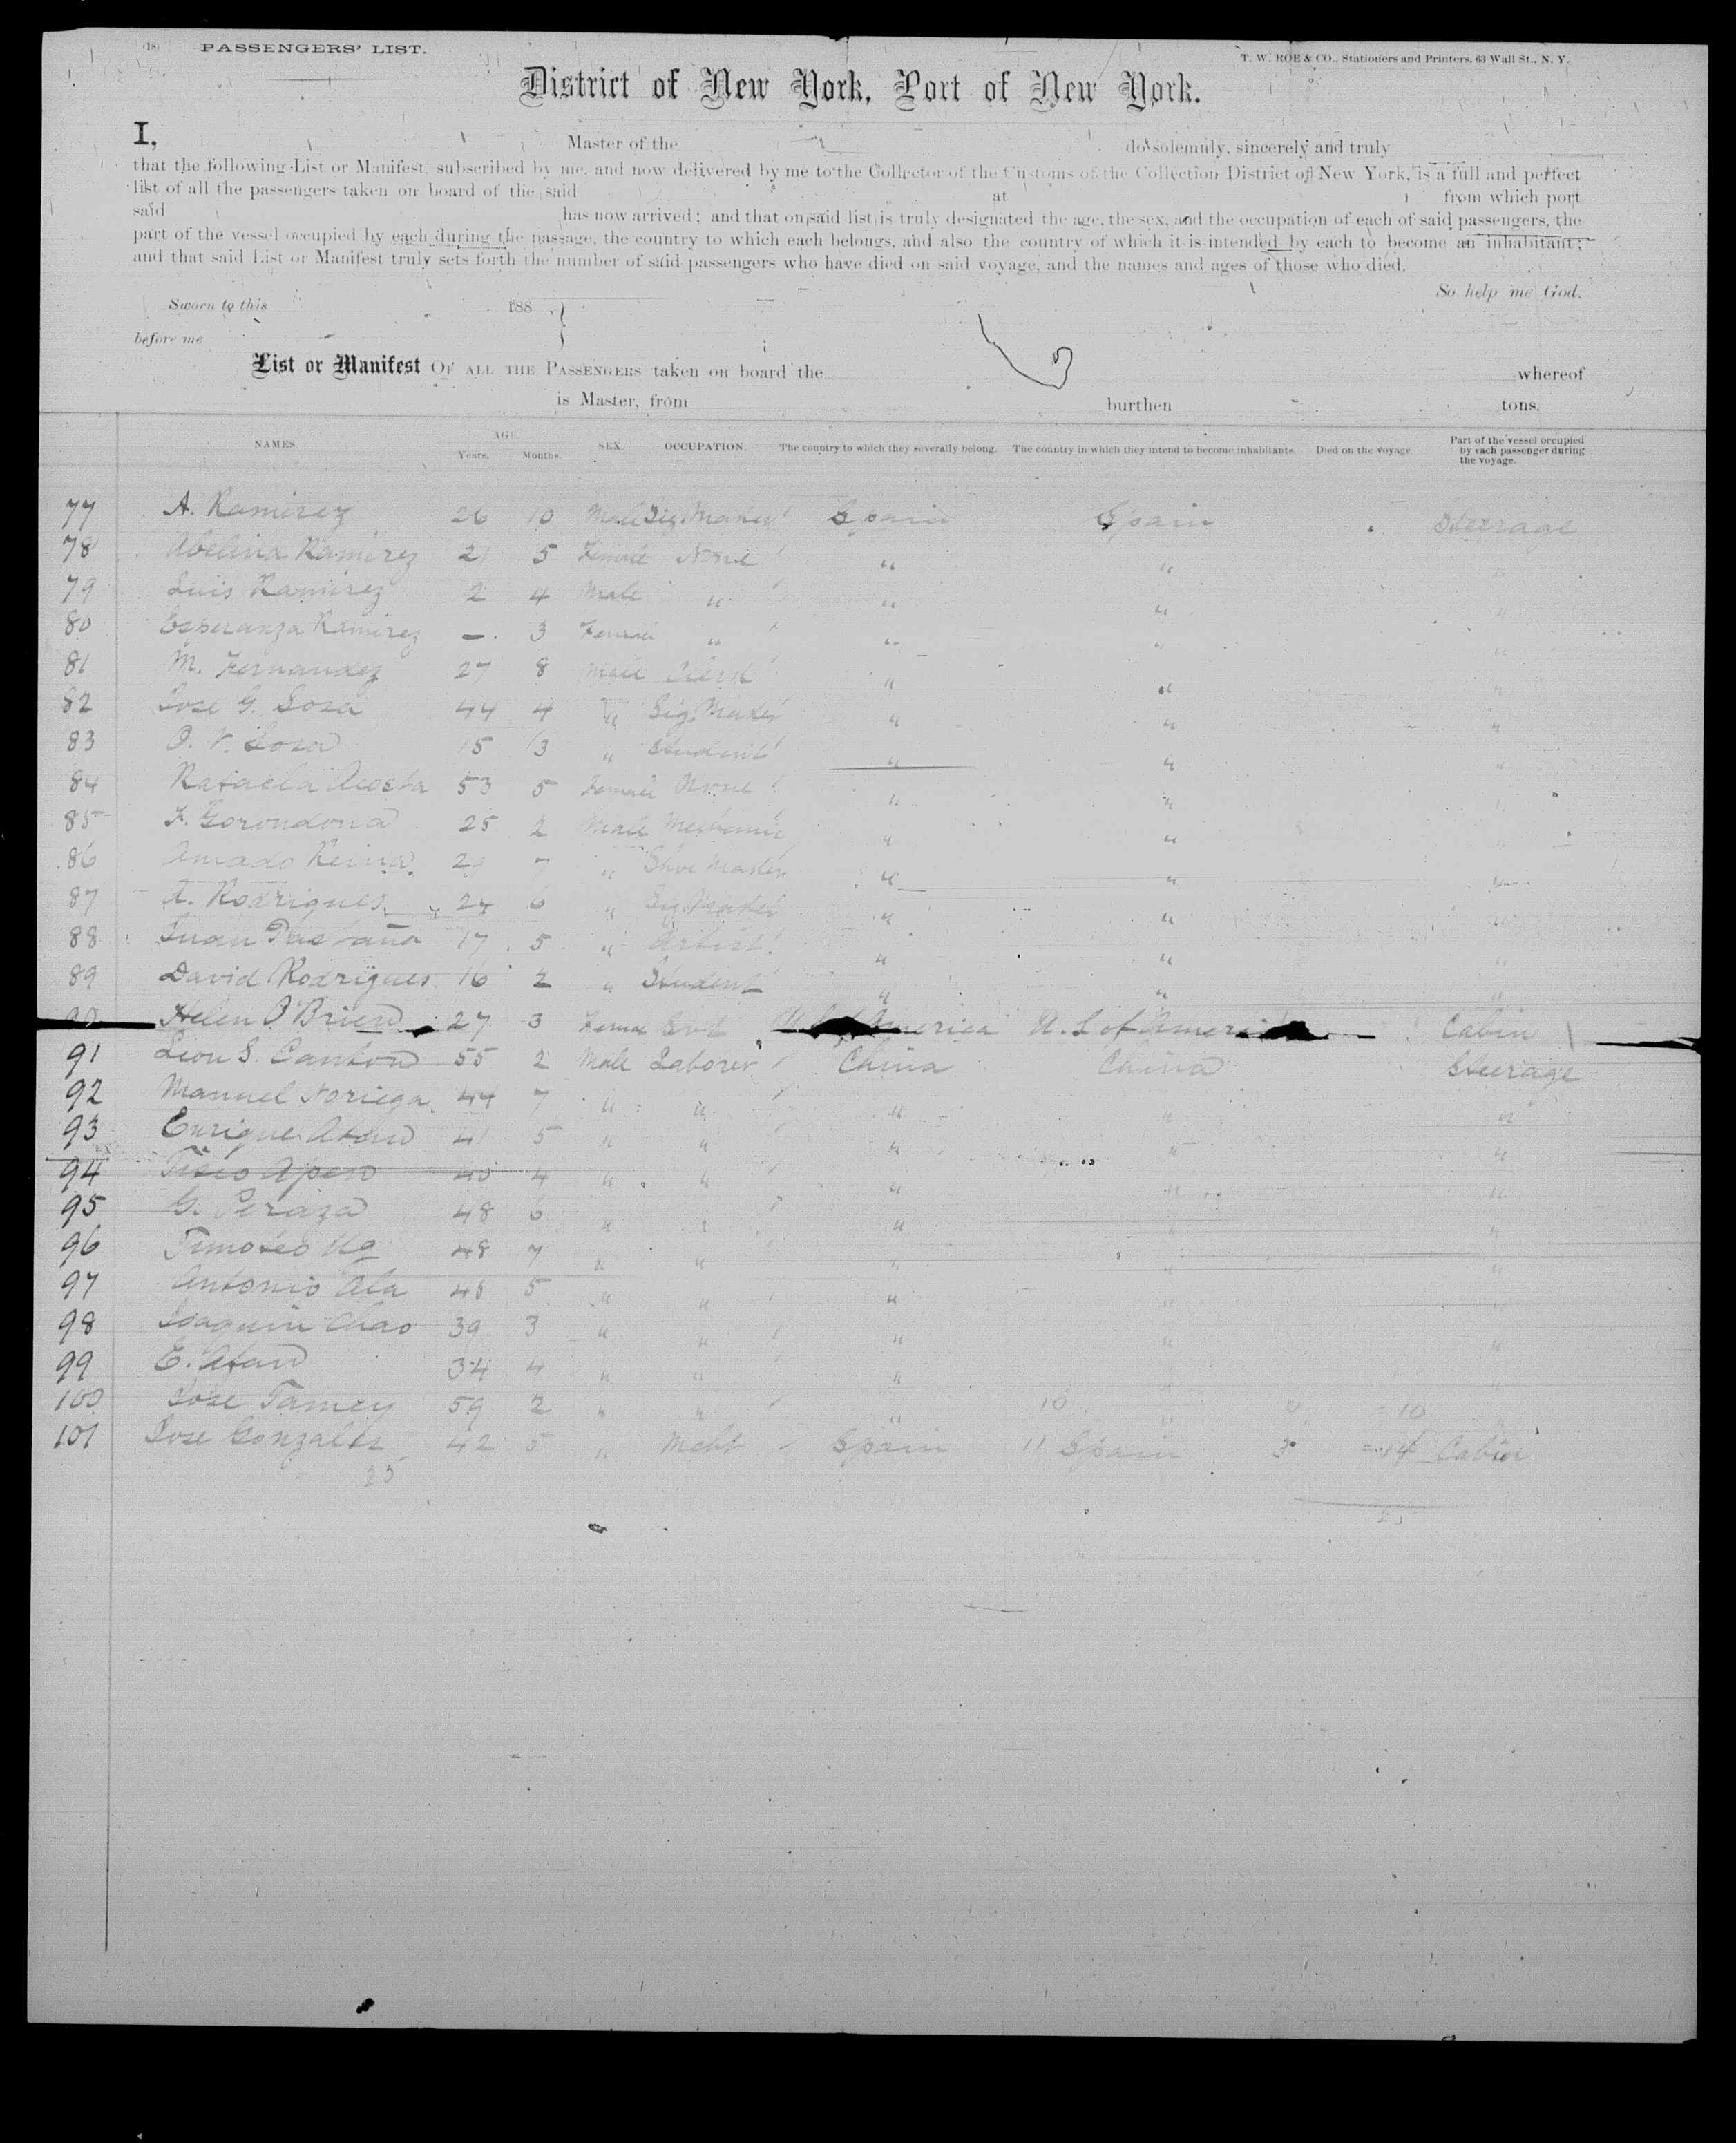 (18) PASSENGERS' LIST. T. W. ROE & CO., Stationers and Printers, 63 Wall St., N. Y.
District of New York, Port of New York.
I, Master of the do solemnly, sincerely and truly
that the following List or Manifest, subscribed by me, and now delivered by me to the Collector of the Customs of the Collection District of New York, is a full and perfect
list of all the passengers taken on board of the said at from which port
said has now arrived; and that on said list is truly designated the age, the sex, and the occupation of each of said passengers, the
part of the vessel occupied by each during the passage, the country to which each belongs, and also the country of which it is intended by each to become an inhabitant;
and that said List or Manifest truly sets forth the number of said passengers who have died on said voyage, and the names and ages of those who died.
So help me God.
Sworn to this 188
before me
List or Manifest OF ALL THE PASSENGERS taken on board the whereof
is Master, from burthen tons.
NAMES AGE Years. Months. SEX. OCCUPATION. The country to which they severally belong. The country in which they intend to become inhabitants. Died on the voyage Part of the vessel occupied by each passenger during the voyage.
77 A. Ramirez 26 10 Male Sig. Maker Spain Spain Steerage
78 Abelina Ramirez 21 5 Female None " "
79 Luis Ramirez 2 4 Male " " " "
80 Esperanza Ramirez - 3 Female " " " "
81 M. Fernandez 27 8 Male Clerk " " "
82 Jose G. Sosa 44 4 " Sig. Maker " " "
83 O. V. Sosa 15 3 " Student " " "
84 Rafaela Acosta 53 5 Female None " " "
85 F. Gorondona 25 2 Male Mechanic " " "
86 Amado Reina 29 7 " Shoe Maker " " "
87 A. Rodrigues 24 6 " Sig. Maker " " "
88 Juan Pastana 17 5 " Artist " " "
89 David Rodrigues 16 2 " Student " " "
90 Helen O'Brien 27 3 Femal Svt America U. S of America Cabin
91 Leon S. Canton 55 2 Male Laborer China China Steerage
92 Manuel Noriega 44 7 " " " " "
93 Enrique Atan 41 5 " " " " "
94 Apen 4 " " " " "
95 G. Peraza 48 6 " " " " "
96 Timoteo 48 7 " " " " "
97 Antonio Ala 45 5 " " " " "
98 Joaquin Chao 39 3 " " " " "
99 E. Atan 34 4 " " " " "
100 Jose Tamey 59 2 " " " 10 " = 10 "
101 Jose Gonzales 42 5 " Mcht Spain 11 Spain 3 = 14 Cabin
25
25